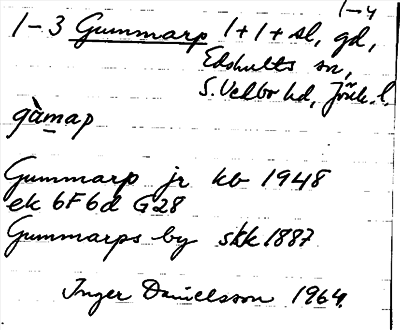 1–4
1–3 Gummarp 1+1+sl, gd,
Edshults sn,
S. Vedbo hd, Jönk. l.
gàmap
Gummarp jr kb 1948
ek 6F6d G28
Gummarps by skk 1887
Inger Danielsson 1964.